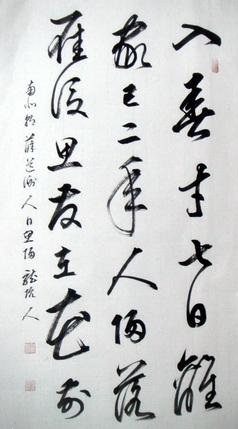 入春才七日離
家已二年人歸落
雁後思發在花前
南北朝薛道衡人日思歸